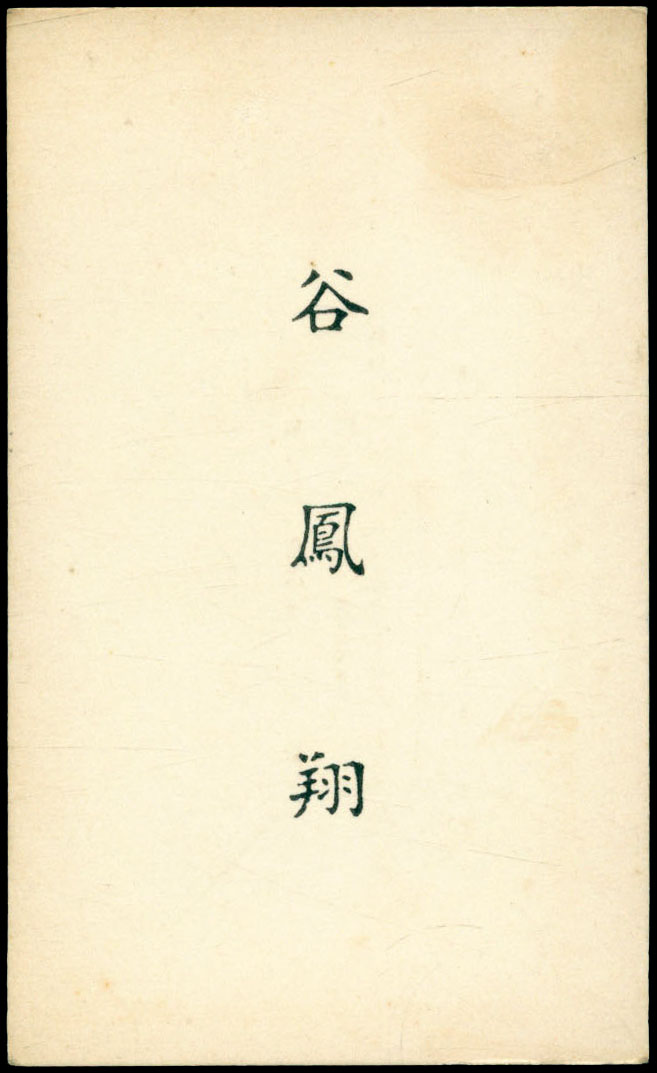 谷鳳翔